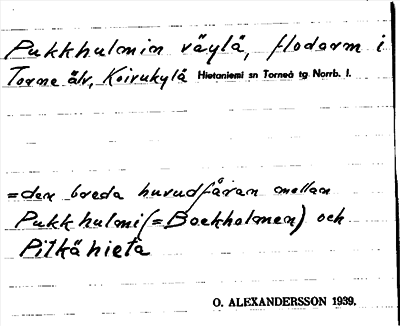 Pukkhulmin väylä, flodarm i
Torne älv, Koivukylä Hietaniemi sn Torneå tg Norrb. l.
=den breda huvudfåran mellan
Pukkhulmi (=Bockholmen) och
Pitkähieta
O. ALEXANDERSSON 1939.